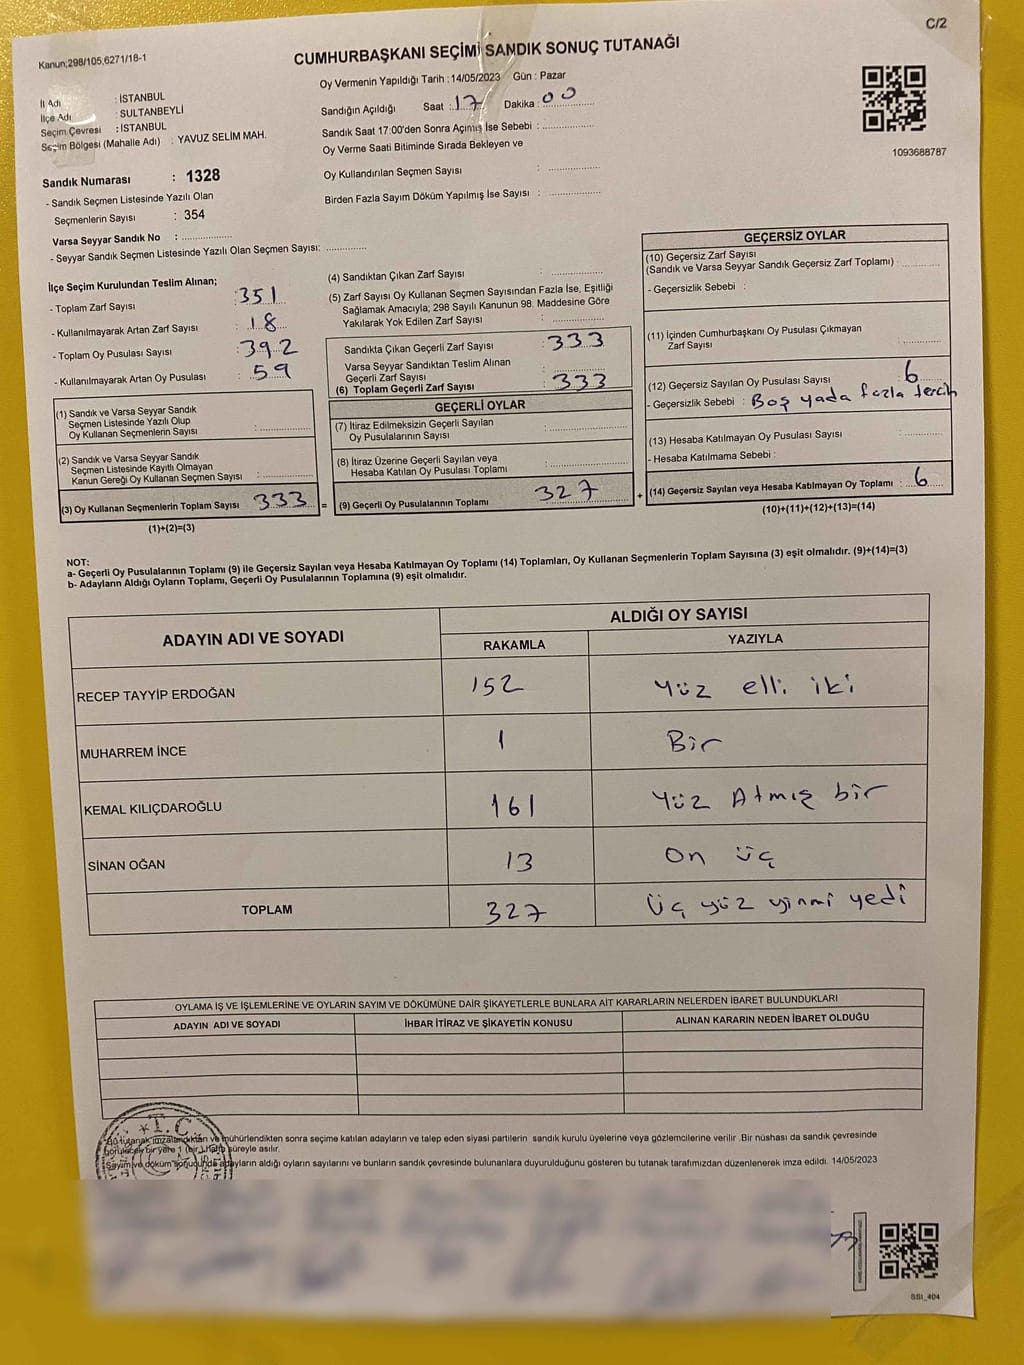 C/2
Kanun:298/105,6271/18-1
CUMHURBAŞKANI SEÇİMİ SANDIK SONUÇ TUTANAĞI
Oy Vermenin Yapıldığı Tarih : 14/05/2023 Gün : Pazar
İl Adı : İSTANBUL
İlçe Adı : SULTANBEYLİ
Seçim Çevresi : İSTANBUL
Seçim Bölgesi (Mahalle Adı) : YAVUZ SELİM MAH.
Sandığın Açıldığı Saat : 17 Dakika : 00
Sandık Saat 17:00'den Sonra Açımış İse Sebebi :
Oy Verme Saati Bitiminde Sırada Bekleyen ve
Oy Kullandırılan Seçmen Sayısı :
Birden Fazla Sayım Döküm Yapılmış İse Sayısı :
1093688787
Sandık Numarası : 1328
- Sandık Seçmen Listesinde Yazılı Olan
Seçmenlerin Sayısı : 354
Varsa Seyyar Sandık No :
- Seyyar Sandık Seçmen Listesinde Yazılı Olan Seçmen Sayısı:
İlçe Seçim Kurulundan Teslim Alınan;
- Toplam Zarf Sayısı : 351
- Kullanılmayarak Artan Zarf Sayısı : 18
- Toplam Oy Pusulası Sayısı : 392
- Kullanılmayarak Artan Oy Pusulası : 59
(1) Sandık ve Varsa Seyyar Sandık
Seçmen Listesinde Yazılı Olup
Oy Kullanan Seçmenlerin Sayısı :
(2) Sandık ve Varsa Seyyar Sandık
Seçmen Listesinde Kayıtlı Olmayan
Kanun Gereği Oy Kullanan Seçmen Sayısı :
(3) Oy Kullanan Seçmenlerin Toplam Sayısı 333 =
(1)+(2)=(3)
(4) Sandıktan Çıkan Zarf Sayısı :
(5) Zarf Sayısı Oy Kullanan Seçmen Sayısından Fazla İse, Eşitliği
Sağlamak Amacıyla; 298 Sayılı Kanunun 98. Maddesine Göre
Yakılarak Yok Edilen Zarf Sayısı :
Sandıkta Çıkan Geçerli Zarf Sayısı : 333
Varsa Seyyar Sandıktan Teslim Alınan
Geçerli Zarf Sayısı :
(6) Toplam Geçerli Zarf Sayısı : 333
GEÇERLİ OYLAR
(7) İtiraz Edilmeksizin Geçerli Sayılan
Oy Pusulalarının Sayısı :
(8) İtiraz Üzerine Geçerli Sayılan veya
Hesaba Katılan Oy Pusulası Toplamı :
(9) Geçerli Oy Pusulalarının Toplamı 327 +
GEÇERSİZ OYLAR
(10) Geçersiz Zarf Sayısı
(Sandık ve Varsa Seyyar Sandık Geçersiz Zarf Toplamı) :
- Geçersizlik Sebebi :
(11) İçinden Cumhurbaşkanı Oy Pusulası Çıkmayan
Zarf Sayısı :
(12) Geçersiz Sayılan Oy Pusulası Sayısı : 6
- Geçersizlik Sebebi : Boş yada fazla tercih
(13) Hesaba Katılmayan Oy Pusulası Sayısı :
- Hesaba Katılmama Sebebi :
(14) Geçersiz Sayılan veya Hesaba Katılmayan Oy Toplamı : 6
(10)+(11)+(12)+(13)=(14)
NOT:
a- Geçerli Oy Pusulalarının Toplamı (9) ile Geçersiz Sayılan veya Hesaba Katılmayan Oy Toplamı (14) Toplamları, Oy Kullanan Seçmenlerin Toplam Sayısına (3) eşit olmalıdır. (9)+(14)=(3)
b- Adayların Aldığı Oyların Toplamı, Geçerli Oy Pusulalarının Toplamına (9) eşit olmalıdır.
ADAYIN ADI VE SOYADI
ALDIĞI OY SAYISI
RAKAMLA YAZIYLA
RECEP TAYYİP ERDOĞAN 152 Yüz elli iki
MUHARREM İNCE 1 Bir
KEMAL KILIÇDAROĞLU 161 Yüz Atmış bir
SİNAN OĞAN 13 On üç
TOPLAM 327 Üç yüz yinmi yedi
OYLAMA İŞ VE İŞLEMLERİNE VE OYLARIN SAYIM VE DÖKÜMÜNE DAİR ŞİKAYETLERLE BUNLARA AİT KARARLARIN NELERDEN İBARET BULUNDUKLARI
ADAYIN ADI VE SOYADI İHBAR İTİRAZ VE ŞİKAYETİN KONUSU ALINAN KARARIN NEDEN İBARET OLDUĞU
T.C.
Bu tutanak imzalandıktan ve mühürlendikten sonra seçime katılan adayların ve talep eden siyasi partilerin sandık kurulu üyelerine veya gözlemcilerine verilir .Bir nüshası da sandık çevresinde
görülecek bir yere 1 (bir) Hafta süreyle asılır.
Sayım ve döküm sonucunda adayların aldığı oyların sayılarını ve bunların sandık çevresinde bulunanlara duyurulduğunu gösteren bu tutanak tarafımızdan düzenlenerek imza edildi. 14/05/2023
SSI_404